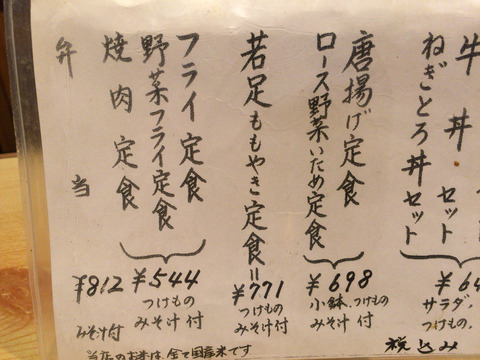 牛丼セット
ねぎとろ丼セット
¥64
サラダ、
つけもの、
税込み
唐揚げ定食
ロース野菜いため定食
¥698
小鉢、つけもの
みそ汁付
若足ももやき定食=
¥771
つけもの
みそ汁付
フライ定食
野菜フライ定食
¥544
つけもの
みそ汁付
焼肉定食
弁当
¥812
みそ汁付
当店のお米は、全て国産米です